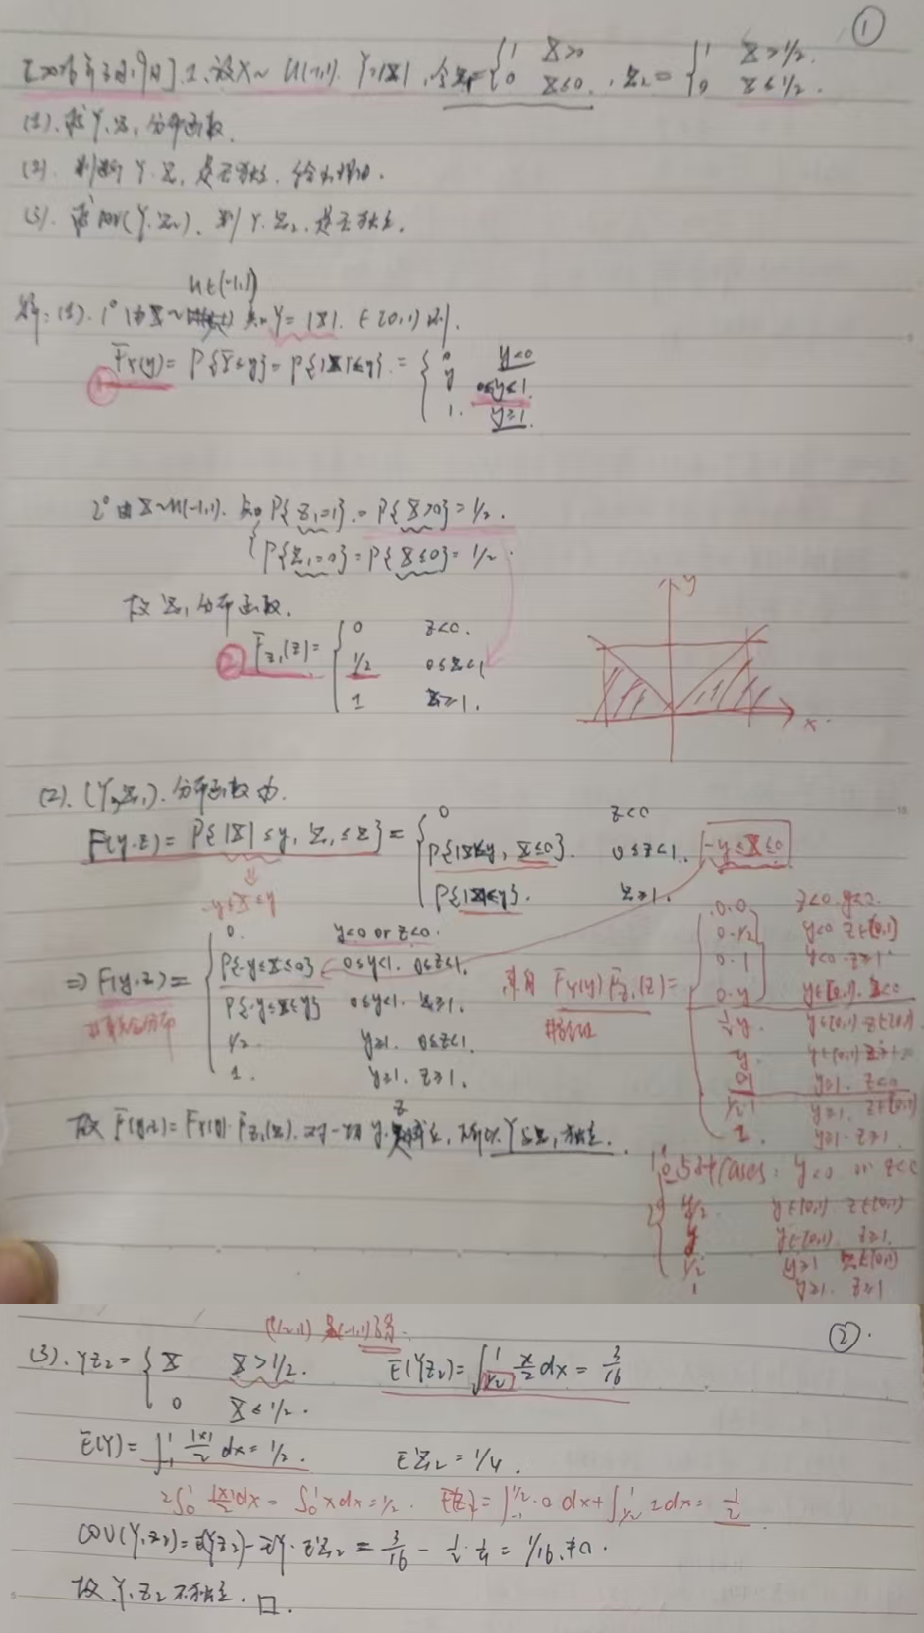 ①
1. 设X~U(-1,1). Y=|X|, 令Z₁={1 X>0 0 X≤0. , Z₂={1 X>1/2. 0 X≤1/2.
(1). 求Y, Z₁分布函数.
(2). 判断Y, Z₁是否独立. 给出理由.
(3). 求cov(Y, Z₂). 判Y, Z₂是否独立.
U(-1,1)
解: (1). 1° 由X~ 知Y=|X|. ∈[0,1) 则.
① F_Y(y)=P{Y≤y}=P{|X|≤y}.={0 y<0
y 0≤y<1.
1. y≥1.
2° 由X~U(-1,1). 知P{Z₁=1}.=P{X>0}=1/2.
P{Z₁=0}=P{X≤0}=1/2.
故Z₁分布函数.
② F_Z₁(z)={0 z<0.
1/2 0≤z<1
1 z≥1.
y
x
(2). (Y, Z₁). 分布函数为.
F(y,z)=P{|X|≤y, Z₁≤z}={0 z<0
P{|X|≤y, X≤0}. 0≤z<1. -y≤X≤0
P{|X|≤y}. z≥1.
-y≤X≤y
⇒ F(y,z)={0. y<0 or z<0.
P{-y≤X≤0} 0≤y<1. 0≤z<1.
P{-y≤X≤y} 0≤y<1. z≥1.
1/2. y≥1. 0≤z<1.
1. y≥1. z≥1.
F_Y(y)F_Z₁(z)={0·0 z<0. y<0.
0·1/2 y<0 z∈[0,1)
0·1 y<0. z≥1
0·y y∈[0,1). z<0
½y. y∈[0,1) z∈[0,1)
y. y∈[0,1)
y≥1. z<0
1/2·1 y≥1. z∈[0,1)
1. y≥1. z≥1.
故F(y,z)=F_Y(y)·F_Z₁(z). 对一切y, z 成立, 所以Y与Z₁独立.
cases: y<0 or z<0
y/2 y∈[0,1) z∈[0,1)
y y∈[0,1). z≥1.
1/2 y≥1 z∈[0,1)
1 y≥1. z≥1
②.
(1/2,1)
(3). YZ₂={X X>1/2. E(YZ₂)=∫_{1/2}^1 x/2 dx=3/16
0 X≤1/2.
E(Y)=∫_{-1}^1 |x|/2 dx=1/2. EZ₂=1/4.
2∫₀¹ |x|/2 dx=∫₀¹ x dx=1/2. E(Z)=∫_{-1}^{1/2}·0 dx+∫_{1/2}^1 2dx=1/2
COV(Y,Z₂)=E(YZ₂)-EY·EZ₂=3/16-1/2·1/4=1/16.≠0.
故Y, Z₂不独立. □.